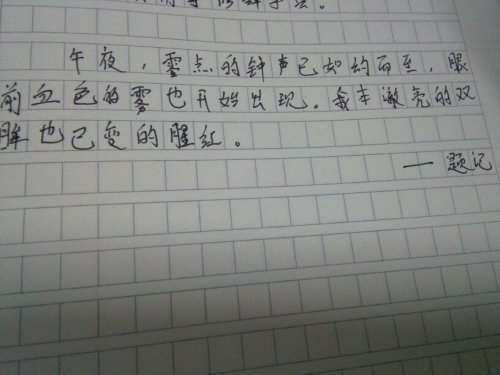 午夜，零点的钟声已如约而至，眼
前血色的雾也开始出现。我本澈亮的双
眸也已变的腥红。
——题记